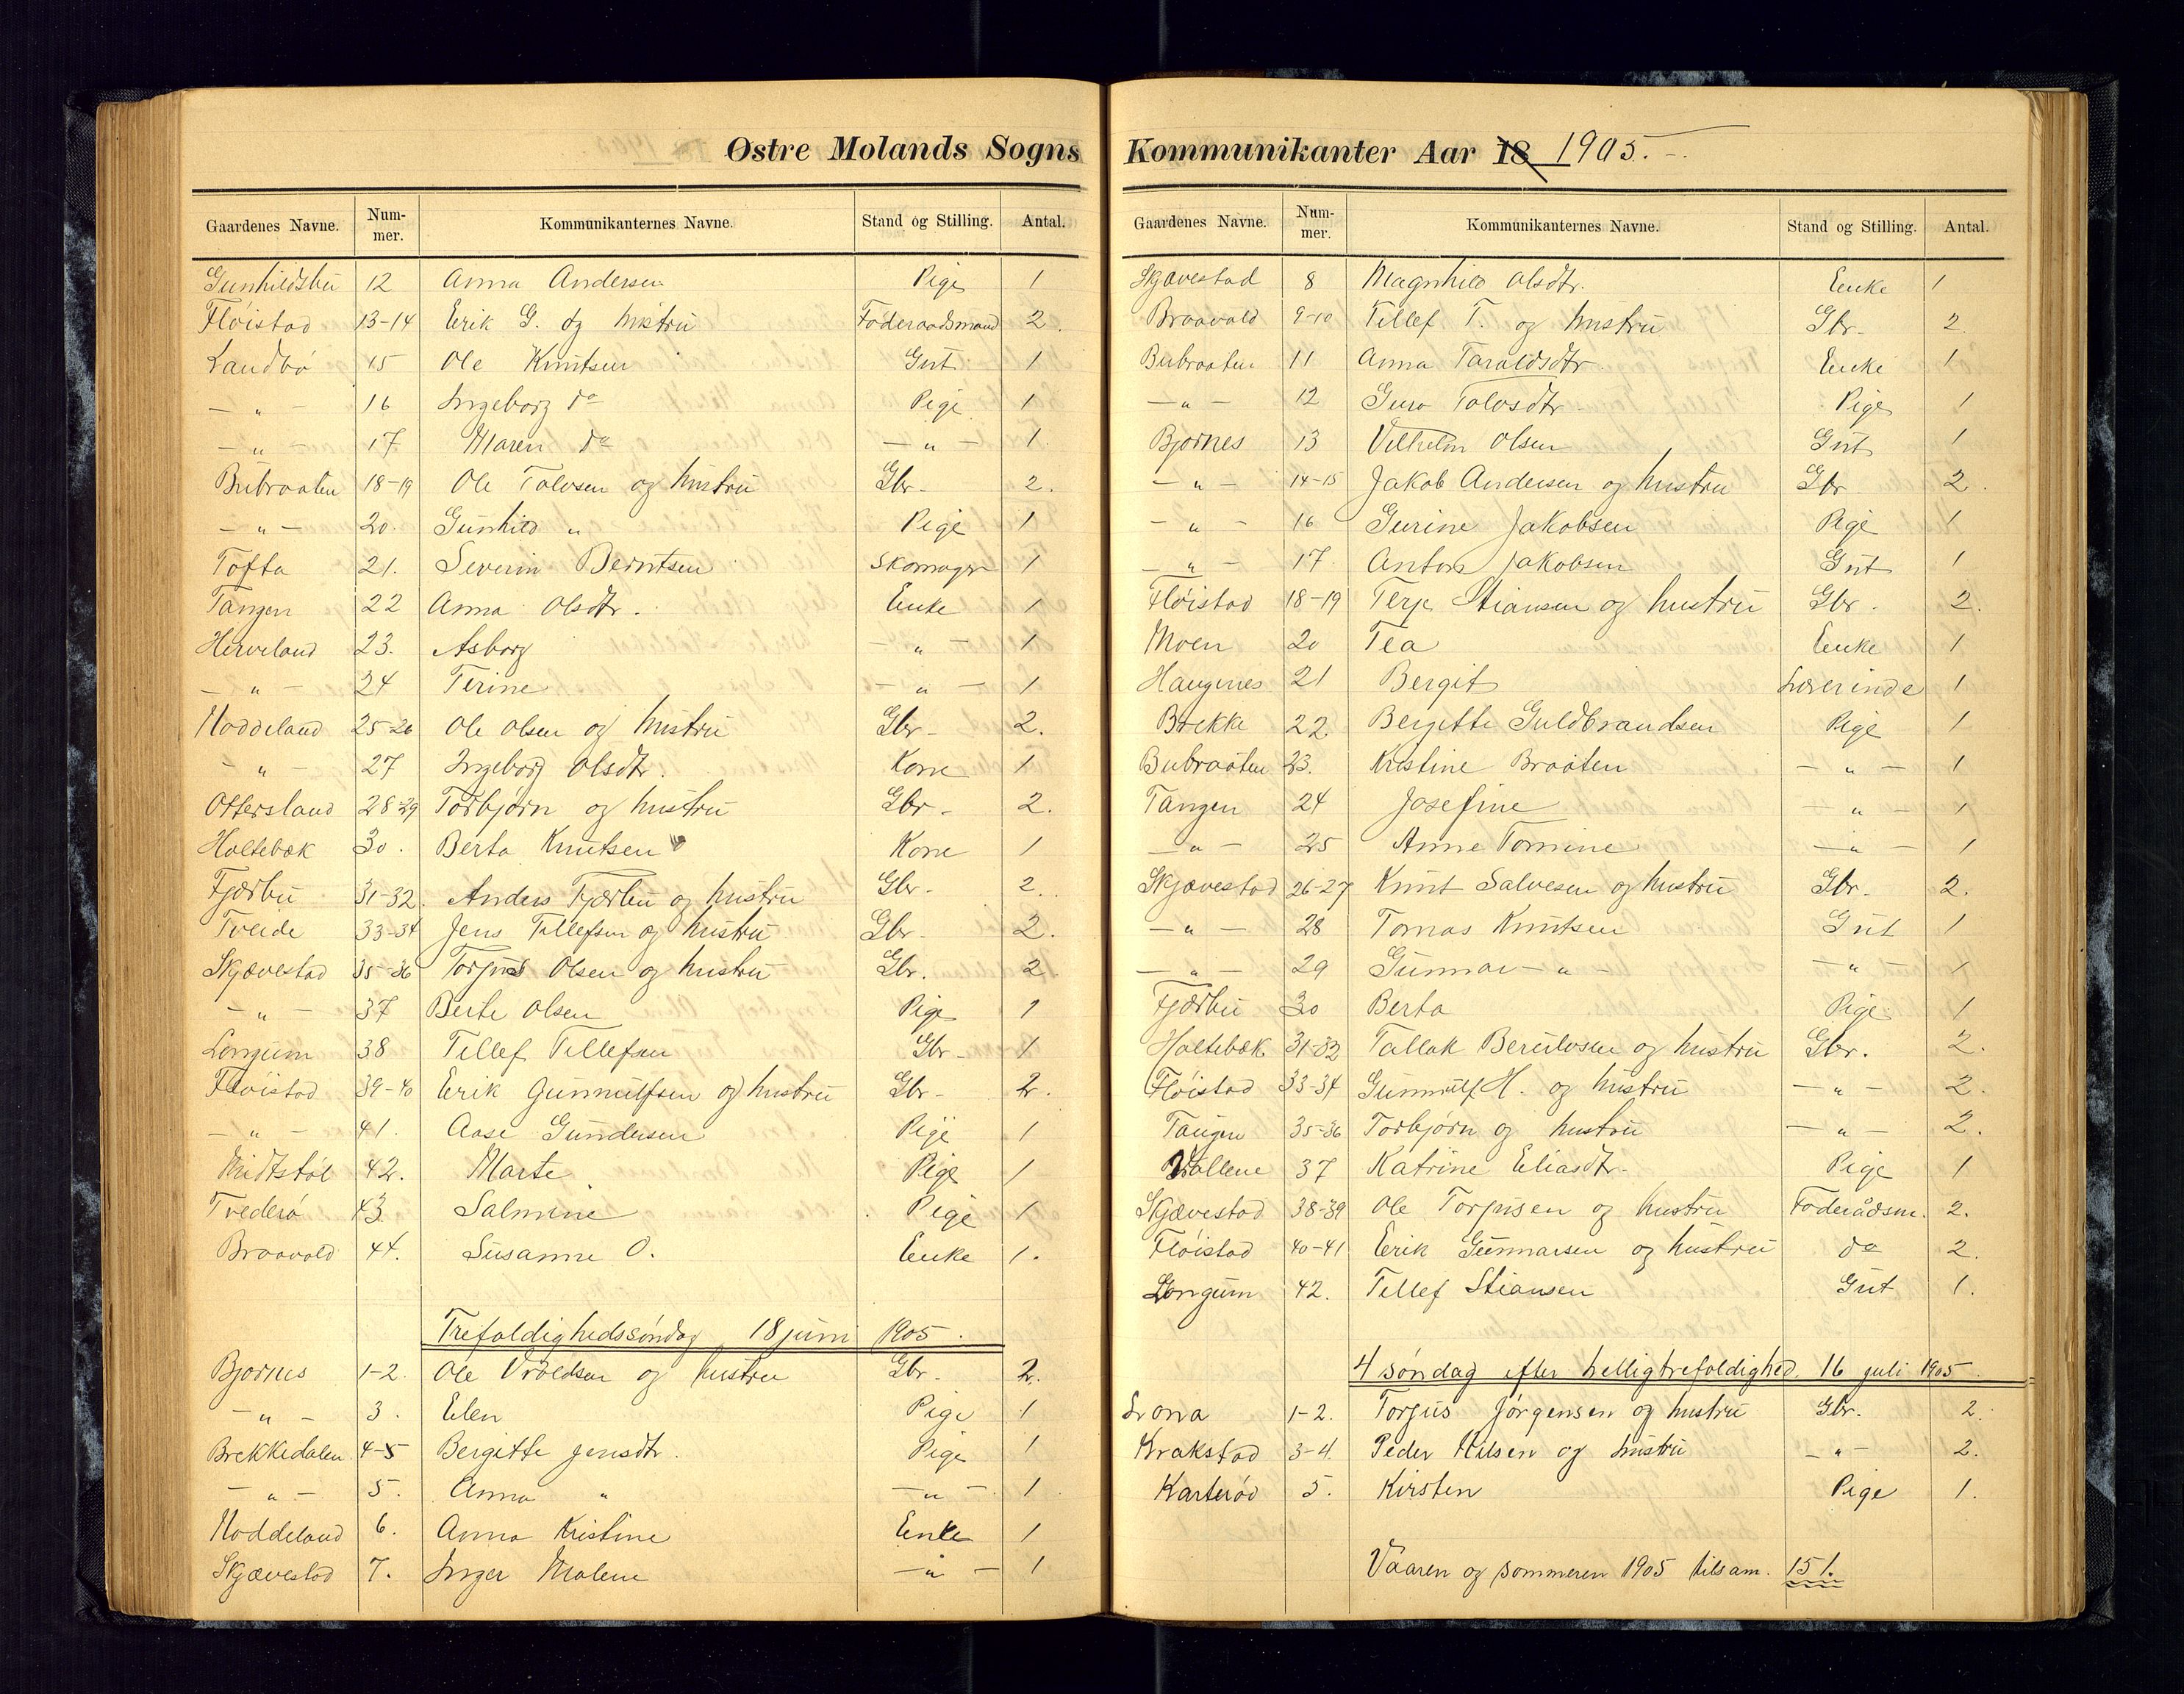 Østre Molands Sogns
Gaardenes Navne. Num-mer. Kommunikanternes Navne. Stand og Stilling. Antal.
Gunhildsbu 12 Anna Andersen Pige 1
Fløistad 13-14 Erik G. og hustru Føderaadsmand 2.
Landbø 15 Ole Knutsen Gut 1
— " — 16 Ingeborg do Pige 1
— " — 17 Maren do — " — 1
Bubraaten 18-19 Ole Talvsen og hustru Gbr- 2.
— " — 20. Gunhild " Pige 1
Tofta 21. Severin Berntsen Skomager 1
Tangen 22 Anna Olsdtr. Enke 1
Herveland 23. Asborg — " — 1
— " — 24 Terine — " — 1
Noddeland 25-26 Ole Olsen og hustru Gbr- 2.
— " — 27 Ingeborg Olsdtr. Kone 1
Ottersland 28-29 Torbjørn og hustru Gbr- 2.
Holtebæk 30. Berta Knutsen Kone 1
Fjærbu 31-32. Anders Fjærbu og hustru Gbr- 2.
Tveide 33-34 Jens Tellefsen og hustru Gbr- 2.
Skjævestad 35-36 Torjus Olsen og hustru Gbr. 2
— " — 37 Berte Olsen Pige 1
Longum 38 Tellef Tellefsen Gbr- 1
Fløistad 39-40 Erik Gunnulfsen og hustru Gbr- 2.
— " — 41. Aase Gundersen Pige 1
Midtstøl 42. Marte Pige 1
Tvederø 43 Salmine Pige 1
Braavold 44. Susanne O. Enke 1.
Trefoldighedssøndag 18 juni 1905.
Bjørnes 1-2. Ole Vroldsen og hustru Gbr- 2.
— " — 3. Elen Pige 1
Brekkedalen 4-5 Bergitte Jensdtr. Pige 1
— " — 5. Anna " — " — 1
Noddeland 6. Anna Kristine Enke 1
Skjævestad 7. Inger Malene — " — 1
Kommunikanter Aar 18 1905.-.
Gaardenes Navne. Num-mer. Kommunikanternes Navne. Stand og Stilling. Antal.
Skjævestad 8 Magnhild Olsdtr. Enke 1
Braavold 9-10 Tellef T. og hustru Gbr- 2.
Bubraaten 11 Anna Taraldsdtr. Enke 1
— " — 12 Guro Talvsdtr. Pige 1
Bjørnes 13 Vilhelm Olsen Gut 1
— " — 14-15 Jakob Andersen og hustru Gbr. 2.
— " — 16 Gurine Jakobsen Pige 1
— " — 17 Anton Jakobsen Gut 1
Fløistad 18-19 Terje Stiansen og hustru Gbr. 2.
Moen 20 Tea Enke 1
Haugenes 21 Bergit Lærerinde 1
Brekke 22. Bergitte Guldbrandsen Pige 1
Bubraaten 23. Kristine Braaten — " — 1
Tangen 24 Josefine — " — 1
— " — 25 Anne Tomine — " — 1
Skjævestad 26-27 Knut Salvesen og hustru Gbr. 2.
— " — 28 Tomas Knutsen Gut 1
— " — 29 Gunnar — " — — " — 1
Fjærbu 30 Berta Pige 1
Holtebæk 31-32 Tallak Berulvsen og hustru Gbr. 2.
Fløistad 33-34 Gunnulf H. og hustru — " — 2.
Tangen 35-36 Torbjørn og hustru — " — 2.
Vallene 37 Katrine Eliasdtr. Pige 1
Skjævestad 38-39 Ole Torjusen og hustru Føderådsm. 2.
Fløistad 40-41 Erik Gunnarsen og hustru do 2.
Longum 42. Tellef Stiansen Gut 1.
4 søndag efter helligtrefoldighed. 16 juli 1905.
Lona 1-2. Torjus Jørgensen og hustru Gbr. 2.
Krakstad 3-4. Peder Nilsen og hustru — " — 2.
Karterød 5. Kirsten Pige 1.
Vaaren og sommeren 1905 tilsam. 151.